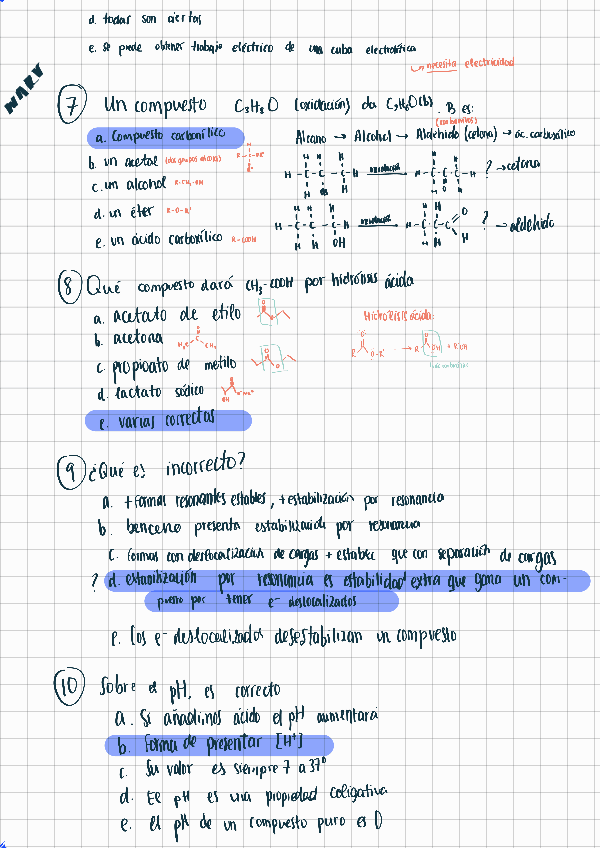 d. todas son ciertas
e. Se puede obtener trabajo eléctrico de una cuba electrolítica
↳ necesita electricidad
NARV
⑦ Un compuesto C₃H₈O (oxidación) da C₃H₆O(B). B es:
(carbonilos)
a. Compuesto carbonílico
Alcano → Alcohol → Aldehído (cetona) → ác. carboxílico
b. un acetal (dos grupos alcoxi)
c. un alcohol R-CH₂-OH
? → cetona
d. un éter R-O-R'
e. un ácido carboxílico R-COOH
? → aldehído
⑧ Qué compuesto dará CH₃-COOH por hidrólisis ácida
a. acetato de etilo
Hidrólisis ácida:
b. acetona
c. propioato de metilo
d. lactato sódico
e. varias correctas
⑨ ¿Qué es incorrecto?
a. + formas resonantes estables, + estabilización por resonancia
b. benceno presenta estabilización por resonancia
c. formas con deslocalización de cargas + estables que con separación de cargas
? d. estabilización por resonancia es estabilidad extra que gana un com-
puesto por tener e⁻ deslocalizados
e. Los e⁻ deslocalizados desestabilizan un compuesto
⑩ Sobre el pH, es correcto
a. Si añadimos ácido el pH aumentará
b. Forma de presentar [H⁺]
c. Su valor es siempre 7 a 37º
d. EE pH es una propiedad coligativa
e. el pH de un compuesto puro es 0